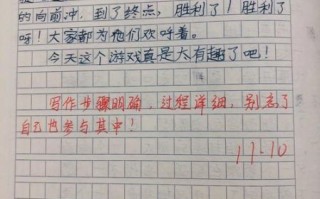 的向前冲，到了终点，胜利了！胜利了
呀！大家都为他们欢呼着。
今天这个游戏真是太有趣了吧！
写作步骤明确，过程详细，别忘了
自己也参与其中！
11-10